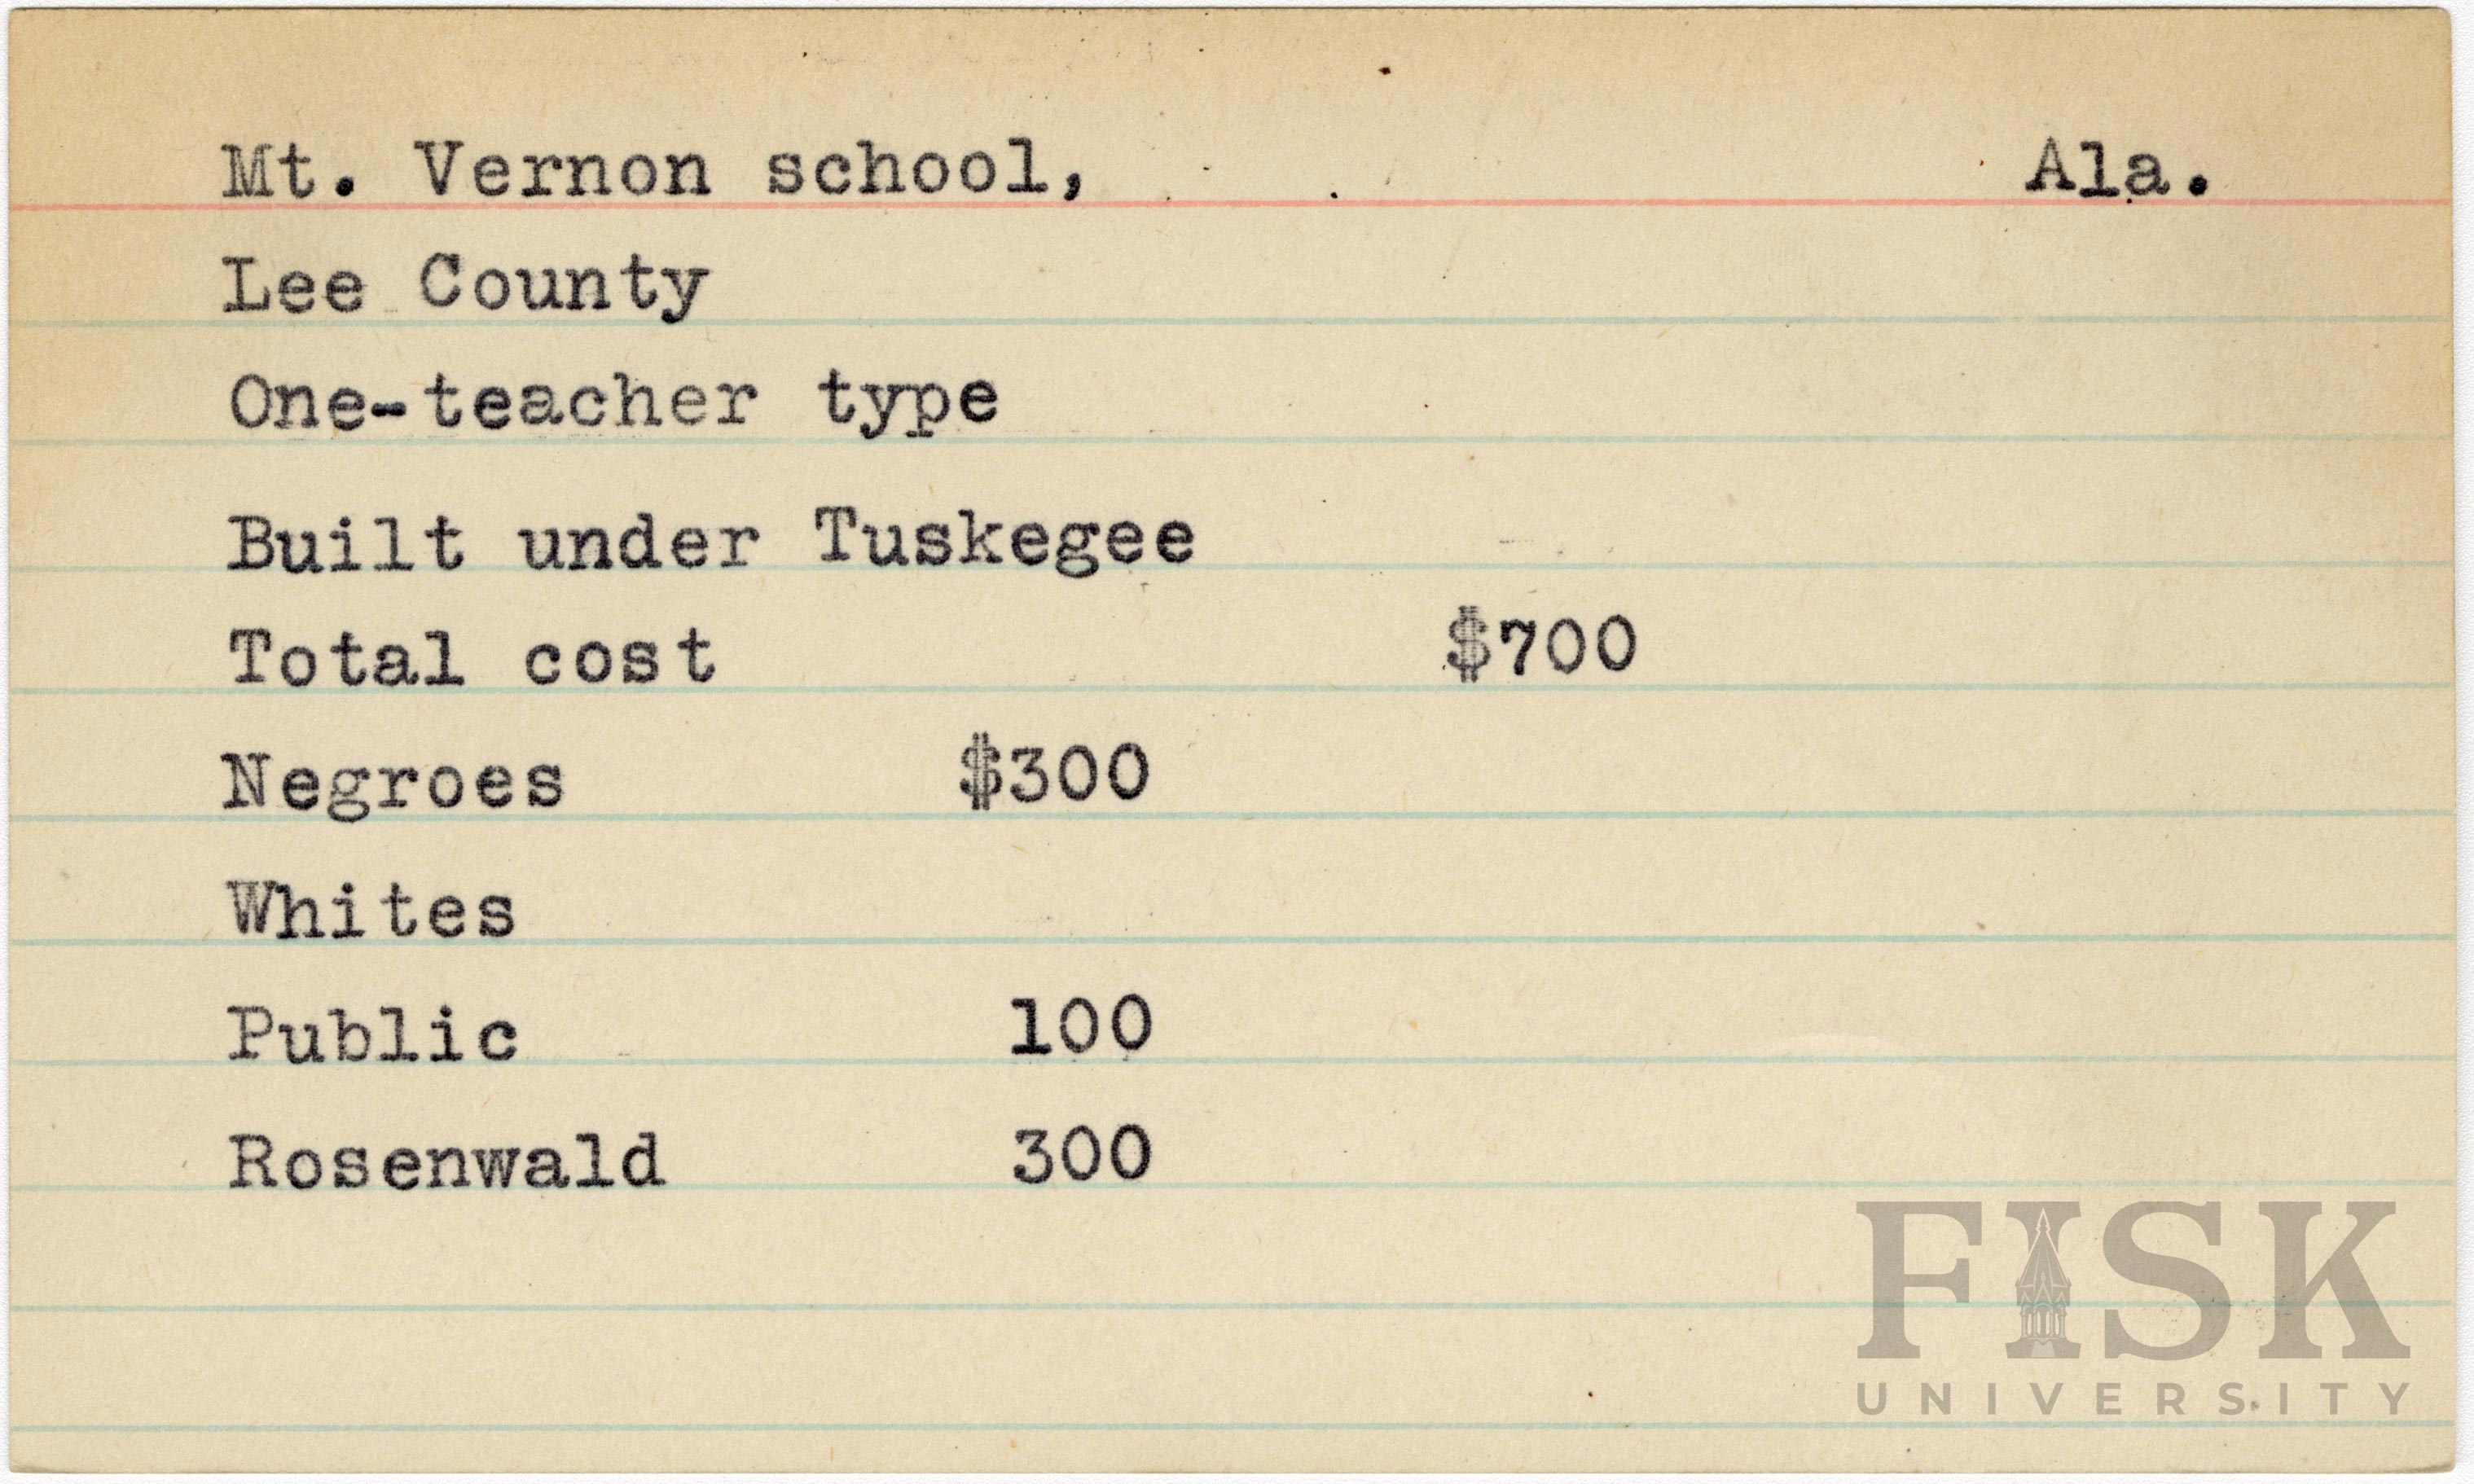 Mt. Vernon school, Ala.
Lee County
One-teacher type
Built under Tuskegee
Total cost $700
Negroes $300
Whites
Public 100
Rosenwald 300
FISK
UNIVERSITY